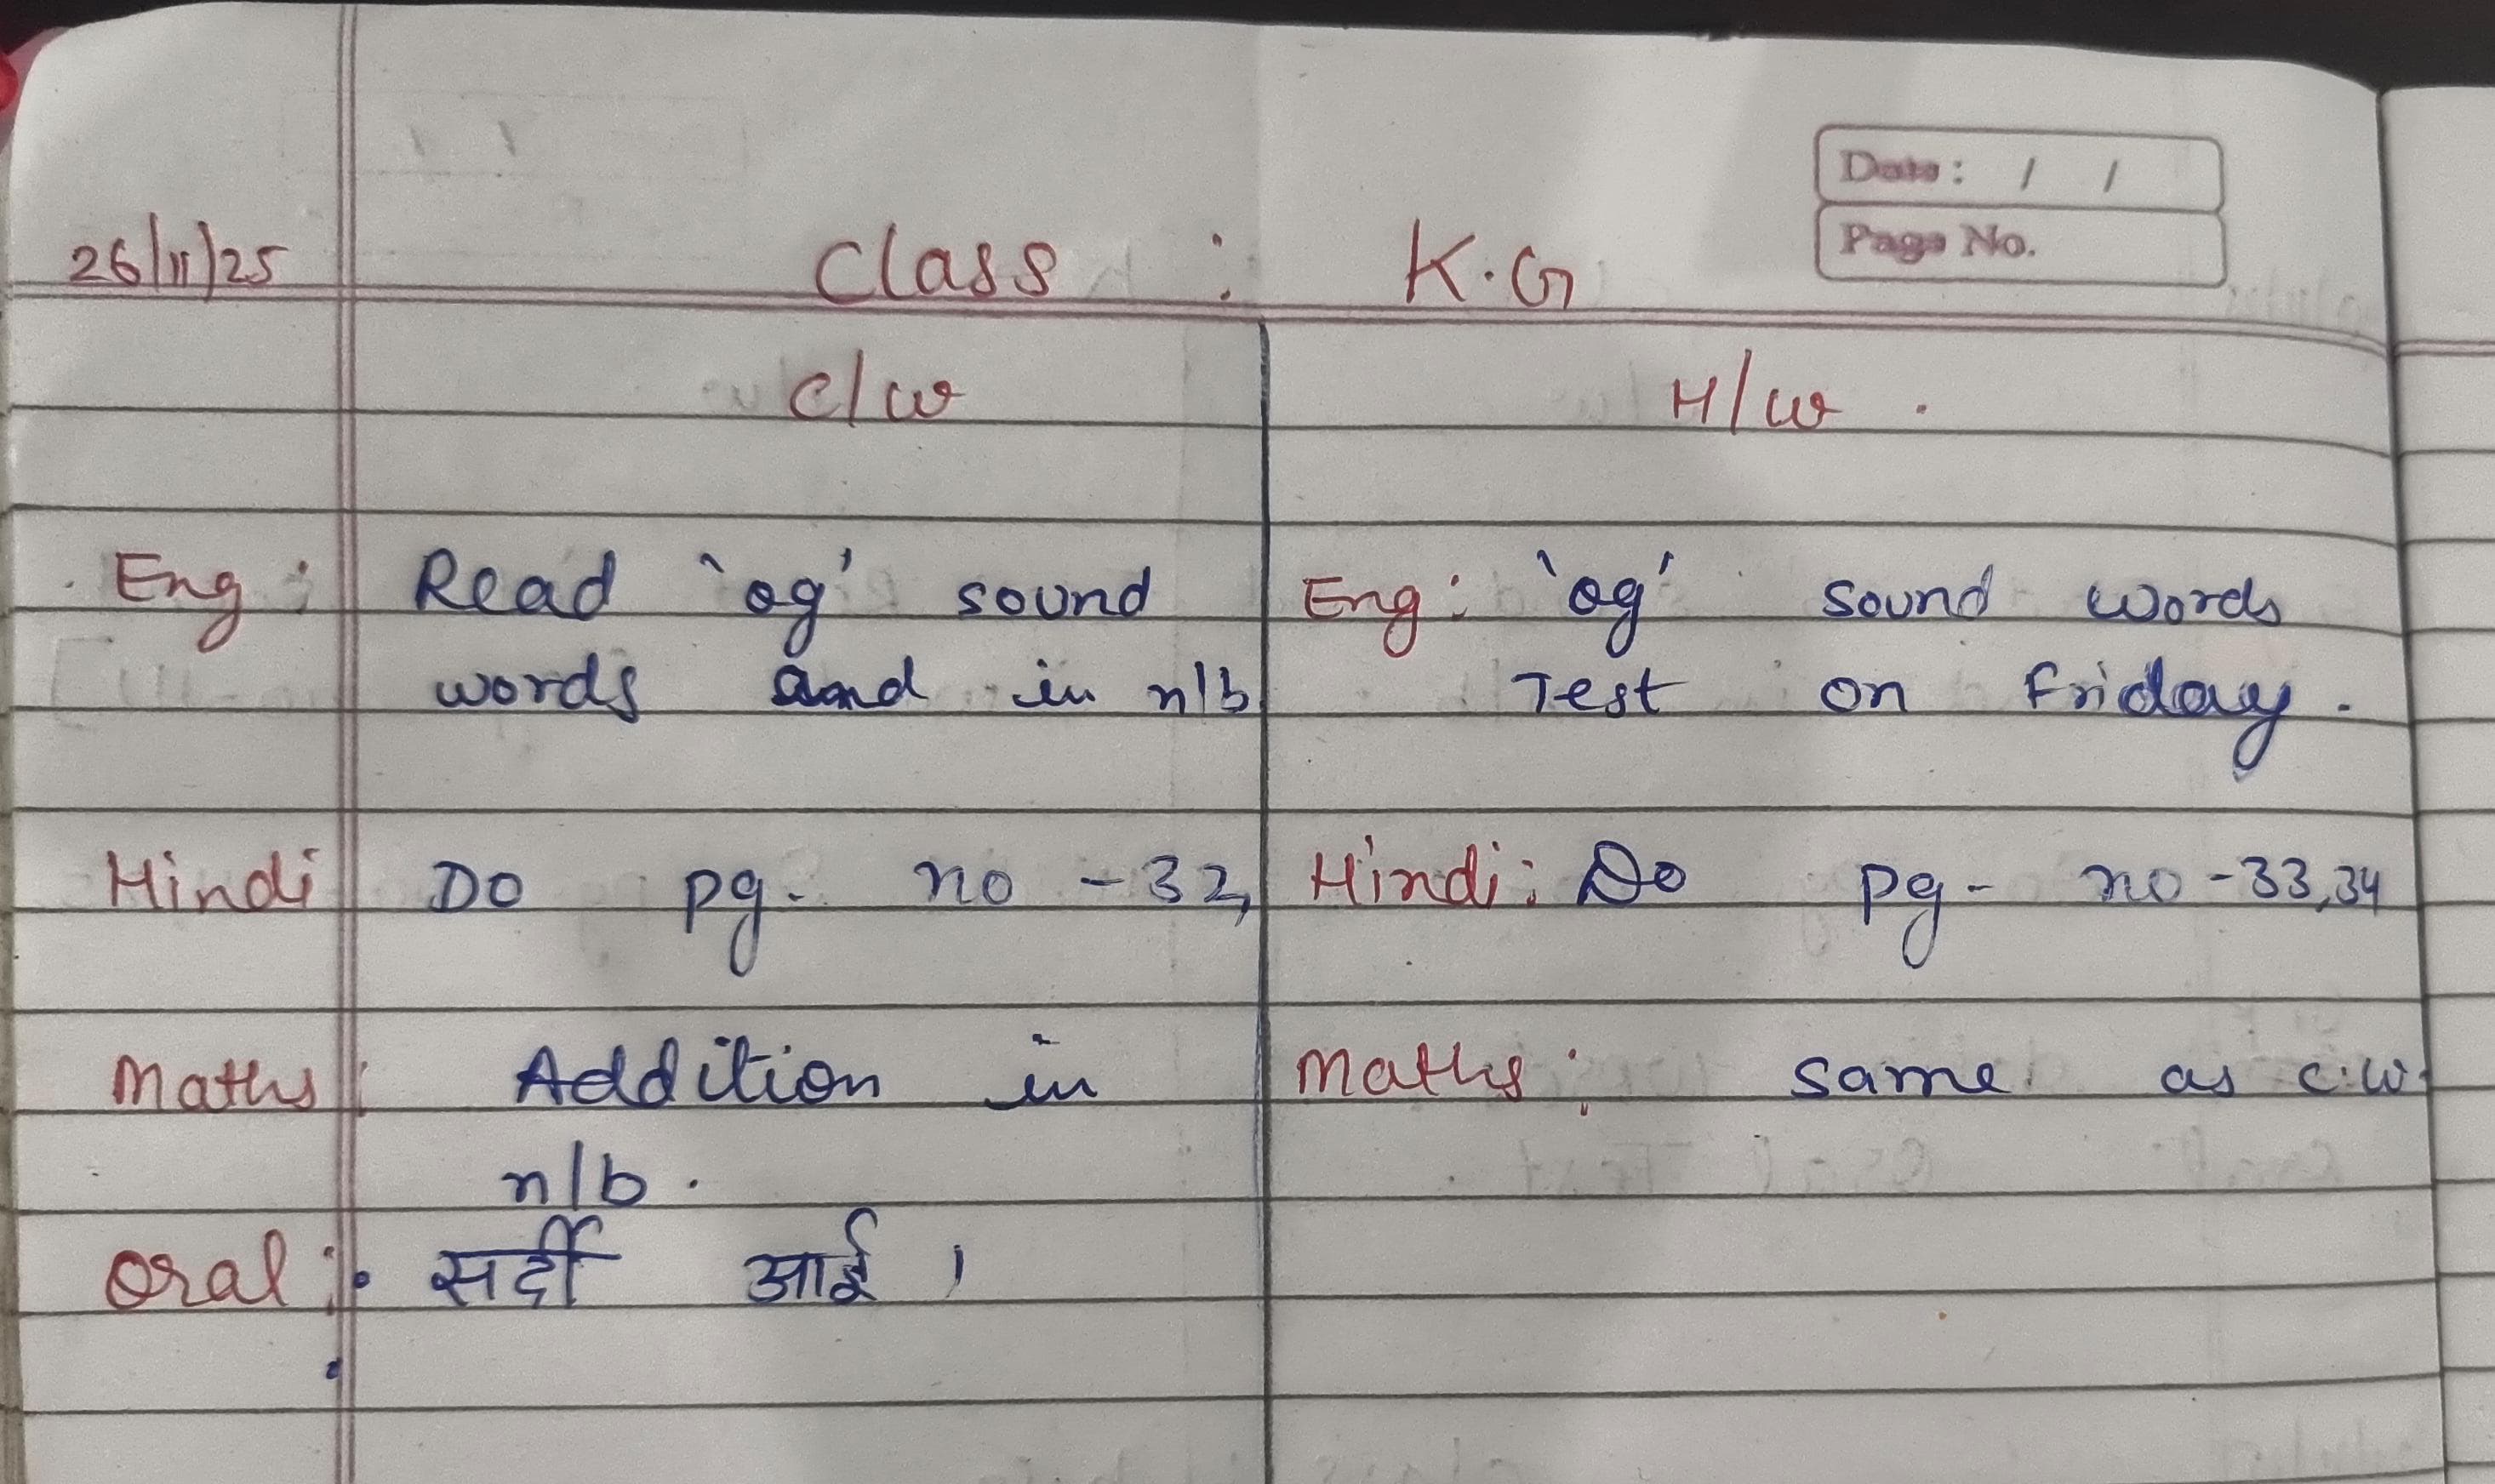 Date: / /
Page No.
26/11/25 Class : K.G
C/w H/w .
Eng : Read 'og' sound Eng : 'og' sound words
words and in n/b Test on Friday .
Hindi Do pg. no - 32, Hindi : Do pg - no - 33,34
Maths : Addition in Maths : same as c.w.
n/b .
Oral : सर्दी आई ।